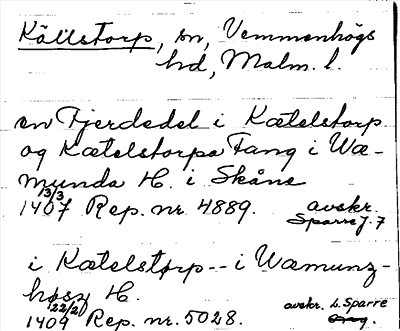 Källstorp, sn, Vemmenhögs
hd, Malm. l.
en Fjerdedel i Kætelstorp
og Kætelstorps Fang i Wæ-
munda H. i Skåne
13/3
1407 Rep. nr 4889. avskr.
Sparre J. 7
i Kætelstorp -- i Wæmunz-
høsz H.
22/21
1409 Rep. nr. 5028. avskr. L. Sparre